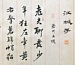 江城子
老夫聊發少
年狂左牽黃
右擎蒼錦帽